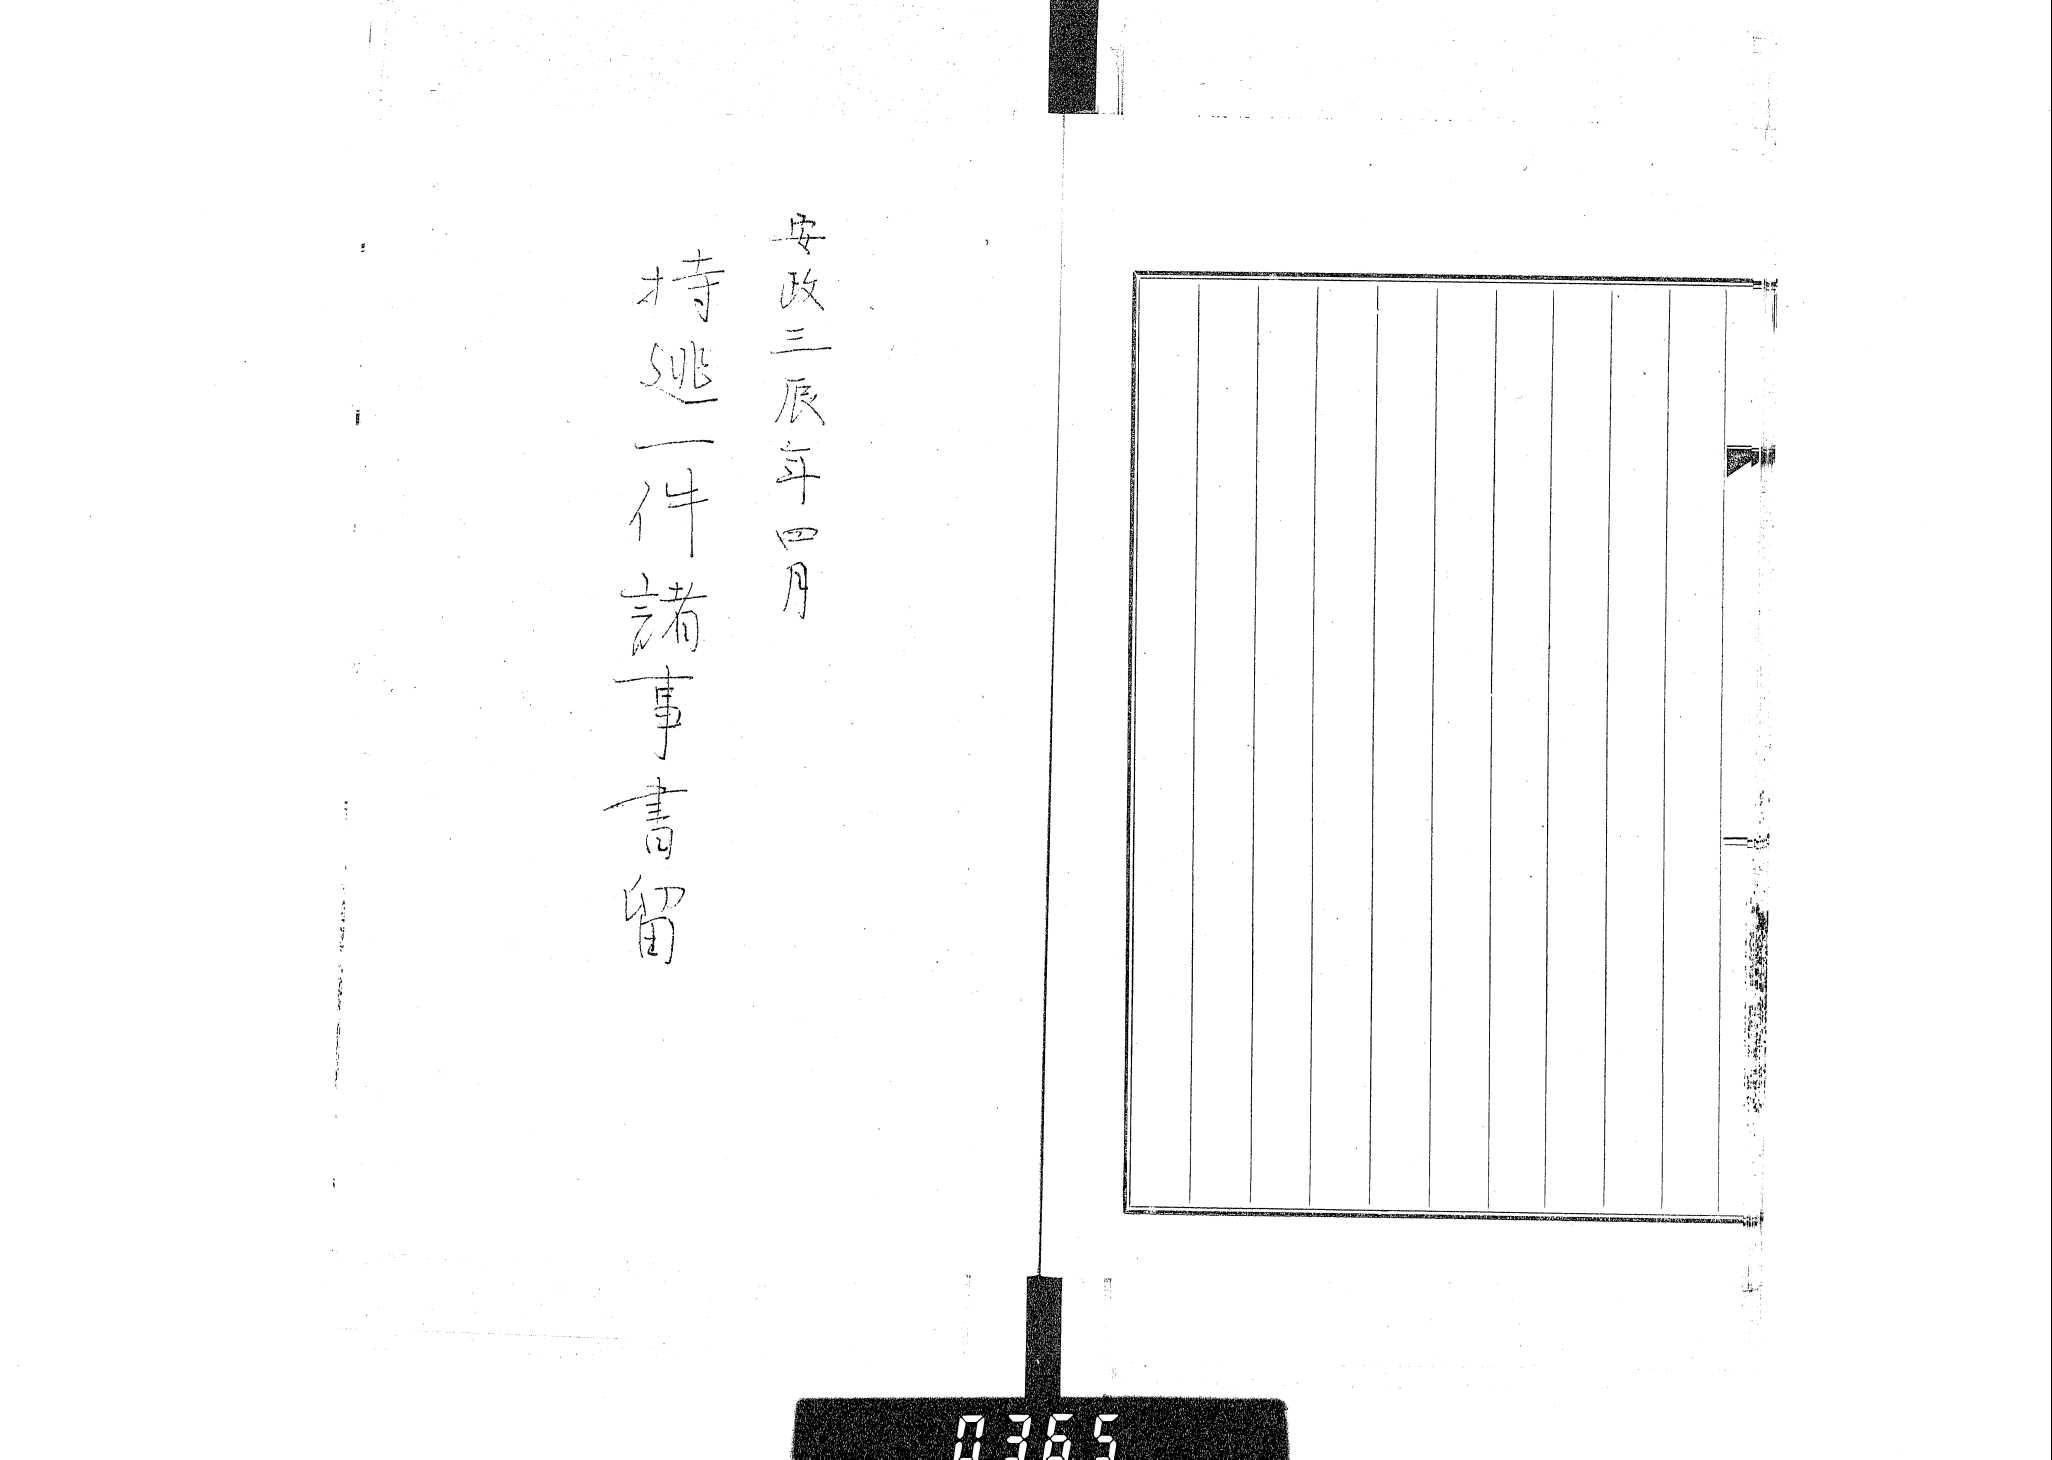 安政三辰年四月
持逃一件諸事書留
0365